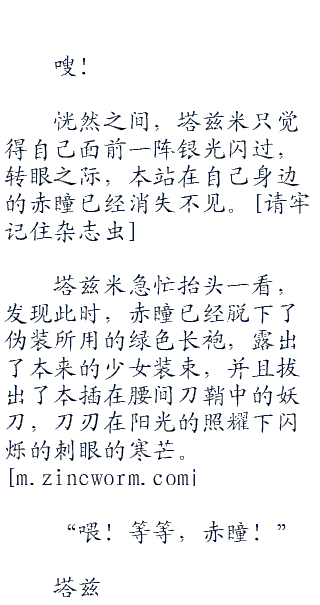 嗖!
恍然之间，塔兹米只觉
得自己面前一阵银光闪过，
转眼之际，本站在自己身边
的赤瞳已经消失不见。[请牢
记住杂志虫]
塔兹米急忙抬头一看，
发现此时，赤瞳已经脱下了
伪装所用的绿色长袍，露出
了本来的少女装束，并且拔
出了本插在腰间刀鞘中的妖
刀，刀刃在阳光的照耀下闪
烁的刺眼的寒芒。
[m.zincworm.com¡
“喂！等等，赤瞳！”
塔兹